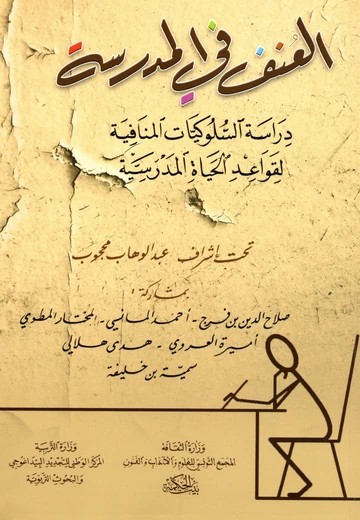 العنف في المدرسة
دراسة السلوكيات المنافية
لقواعد الحياة المدرسية
تحت إشراف عبد الوهاب محجوب
بمشاركة :
صلاح الدين بن فرج - أحمد المانسي - المختار المطوي
أميرة العروي - هدى هلالي
سمية بن خليفة
وزارة الثقافة
المجمع التونسي للعلوم والآداب والفنون
بيت الحكمة
وزارة التربية
المركز الوطني للتجديد البيداغوجي
والبحوث التربوية